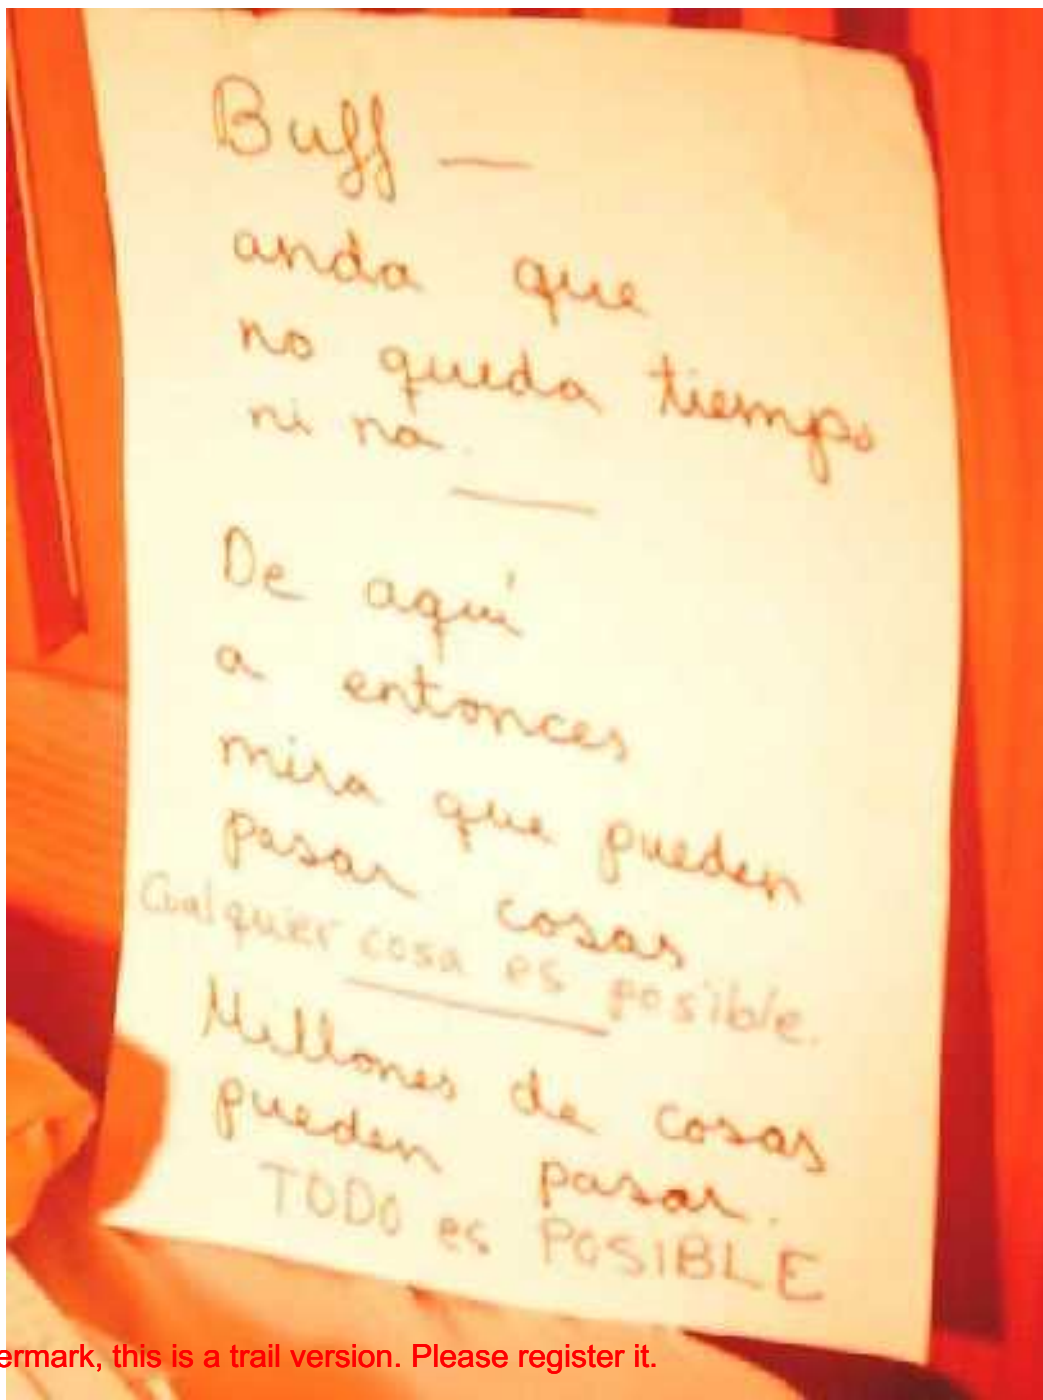 Buff —
anda que
no queda tiempo
ni na.
De aquí
a entonces
mira que pueden
pasar cosas
Cualquier cosa es posible.
Millones de cosas
pueden pasar.
TODO es POSIBLE
ermark, this is a trail version. Please register it.